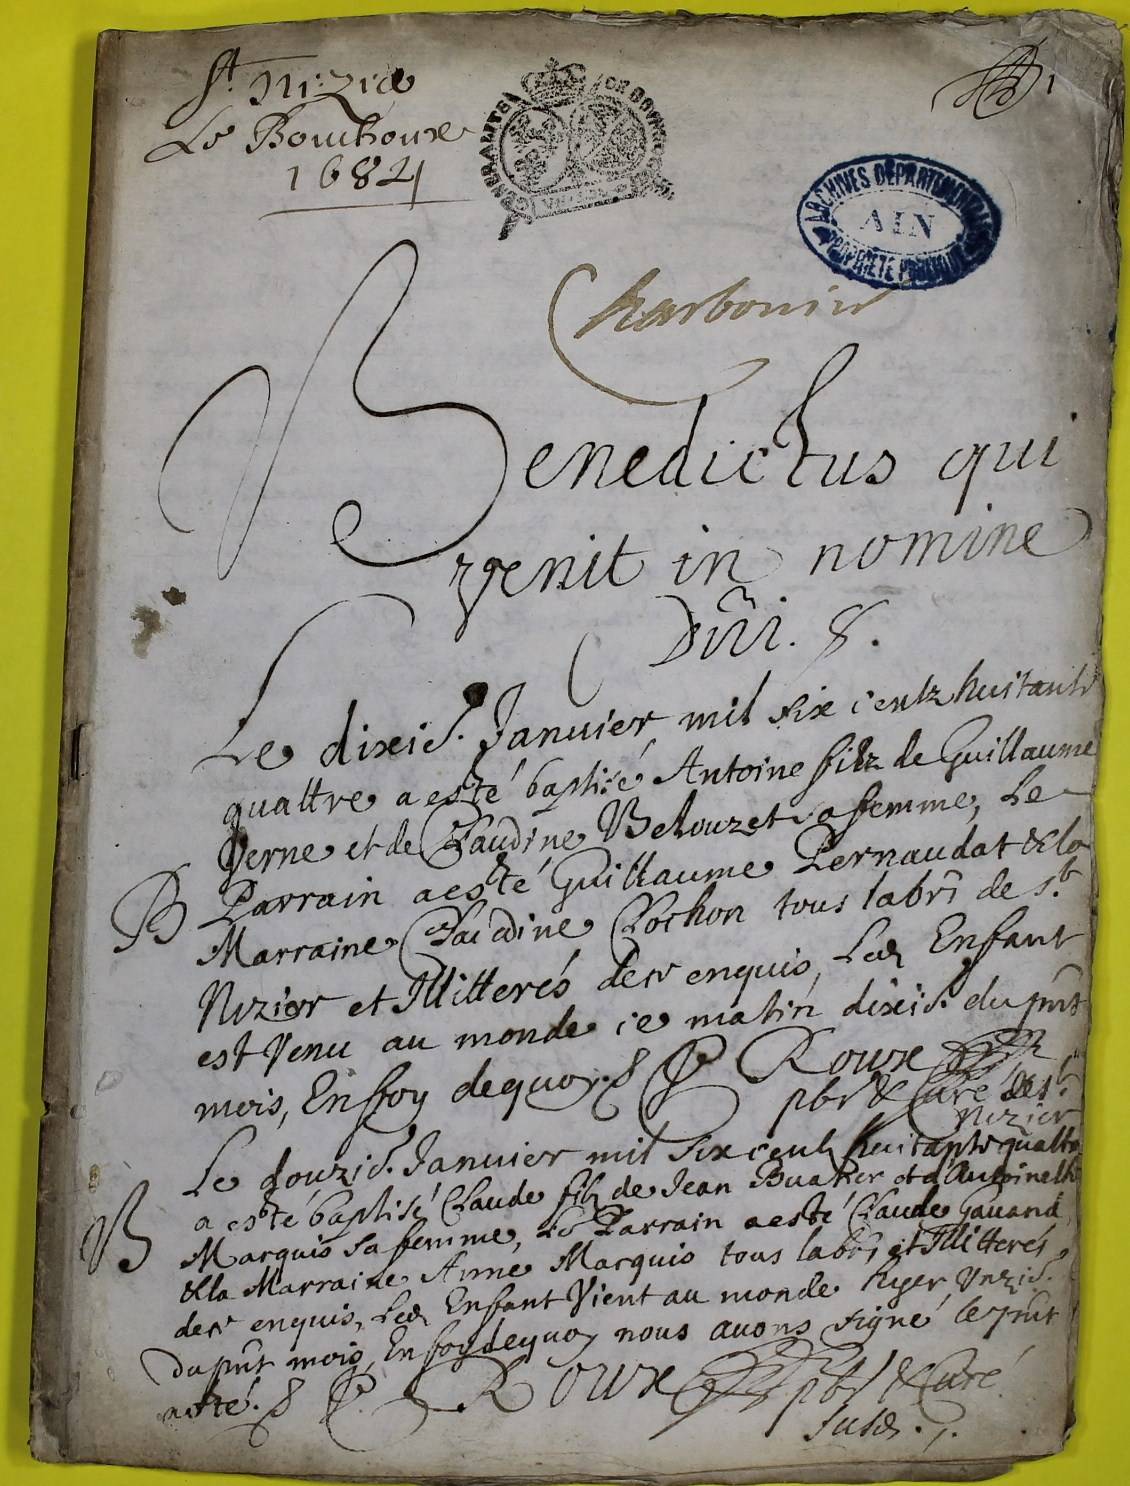 St. Nizier
Le Bouchoux
1684
ARCHIVES DEPARTEMENTALES
AIN
PROPRIETE PUBLIQUE
Charbonier
Benedictus qui
venit in nomine
Dñi. &.
Le dixie. Januier mil six centz huitante
quattre a esté baptisé Antoine filz de Guillaume
Verne et de Claudine Velouzet sa femme, Le
B Parrain a esté Guillaume Pernaudat & la
Marraine Claudine Clochon tous labrs de st.
Nizier et Illitterés de ce enquis, Led Enfant
est Venu au monde ce matin dixie. du pnt
mois, En foy de quoy. & P Roux
pbr & Curé de st.
Nizier
Le douzie. Januier mil six centz huitante quattre
a esté baptisé Claude filz de Jean Buatier et d'Anthoinette
B Marquis sa femme, Le Parrain a esté Claude Gauand
& la Marraine Anne Marquis tous labrs et Illitterés
de ce enquis, Led Enfant Vient au monde hyer Vnzie.
du pnt mois, En foy de quoy nous auons signé le pnt
acte. & P. Roux pbr & Curé
susd.